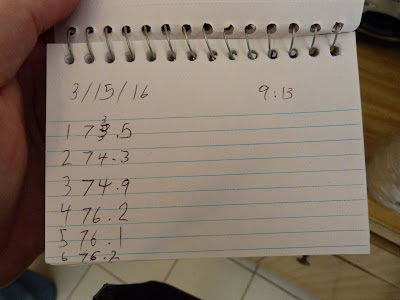 3/15/16 9:13
1 73.5
2 74.3
3 74.9
4 76.2
5 76.1
6 76.2